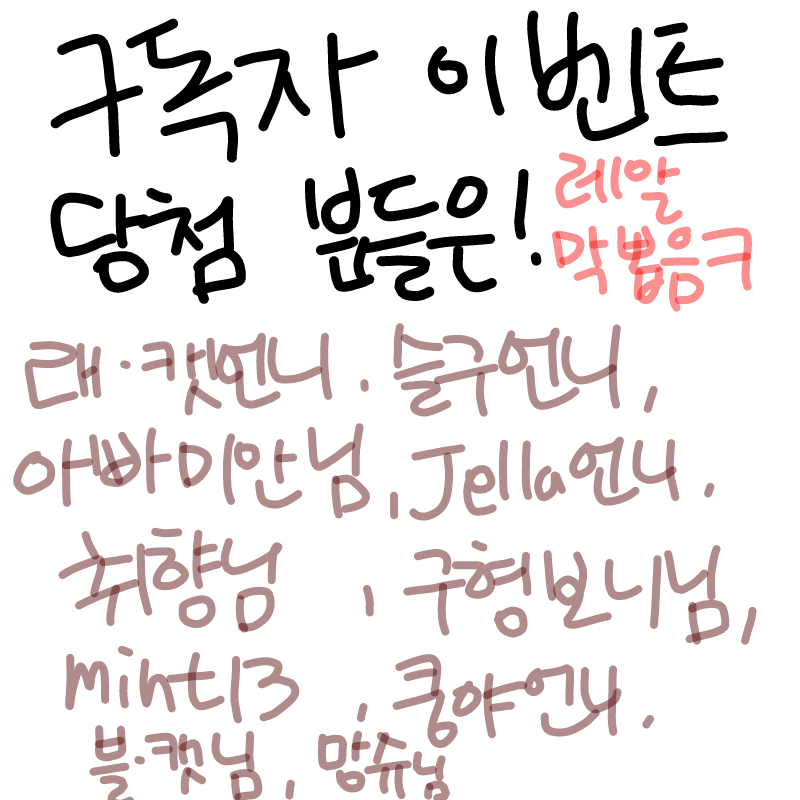 구독자 이벤트
당첨 분들은!
레알
막뽑음ㅋ
래·캣언니. 슬구언니,
아빠미안님, Jella언니.
취향님 , 구형보니님,
mint13 , 쿵야언니.
블·캣님, 맘슈님